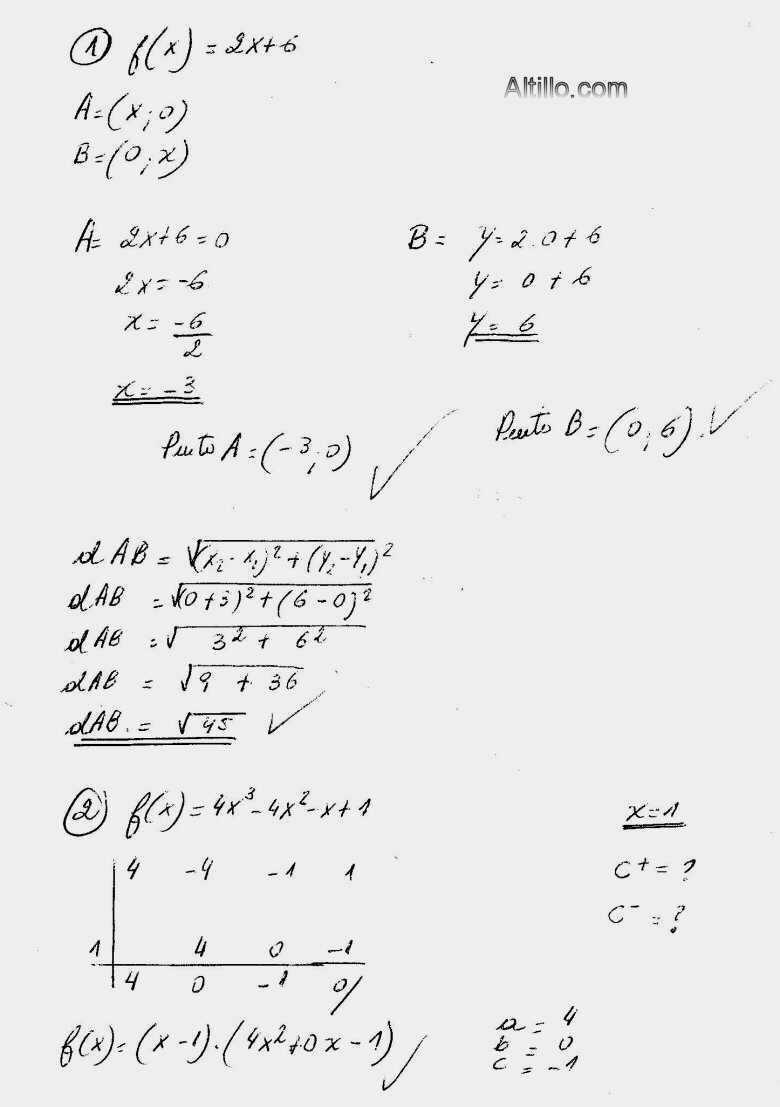 ① f(x) = 2x+6
Altillo.com
A=(x;0)
B=(0;x)
A= 2x+6=0
2x=-6
x= -6/2
x=-3
Punto A=(-3;0)
B= y=2.0+6
y= 0+6
y= 6
Punto B=(0;6).
dAB = √(x₂-x₁)²+(y₂-y₁)²
dAB =√(0+3)²+(6-0)²
dAB =√ 3² + 6²
dAB = √9 + 36
dAB. = √45
② f(x)=4x³-4x²-x+1
x=1
C⁺ = ?
C⁻ = ?
4 -4 -1 1
1 4 0 -1
4 0 -1 0/
f(x)=(x-1).(4x²+0x-1)
a = 4
b = 0
c = -1